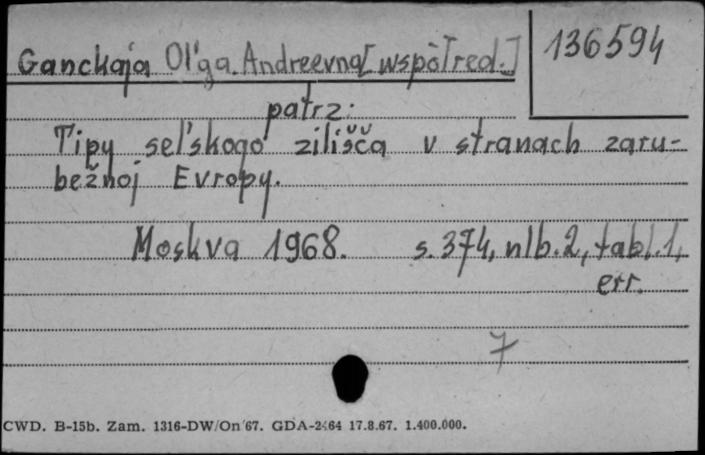 Ganckaja Ol'ga Andreevna [współred.]
136594
patrz:
Tipy sel'skogo žilišča v stranach zaru-
bežnoj Evropy.
Moskva 1968. s. 374, nlb. 2, tabl. 1,
err.
7
CWD. B-15b. Zam. 1316-DW/On 67. GDA-2464 17.8.67. 1.400.000.